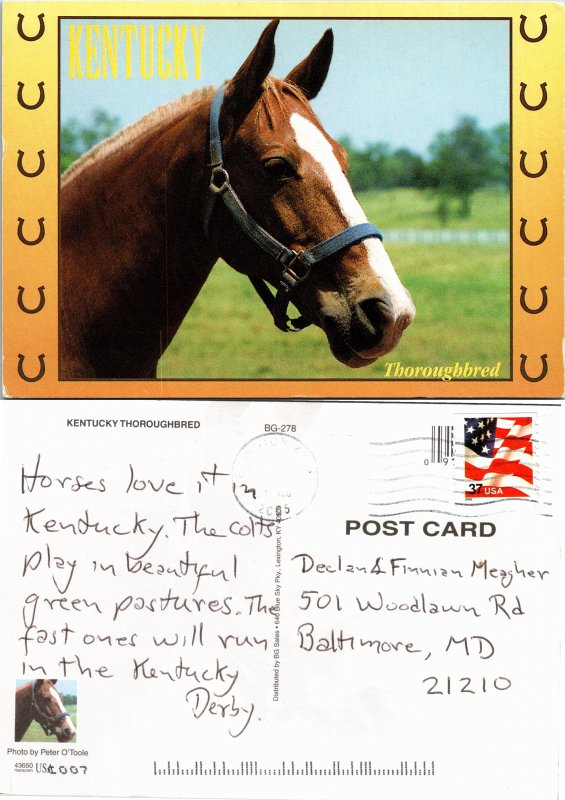 KENTUCKY
Thoroughbred
KENTUCKY THOROUGHBRED
BG-278
Horses love it in
Kentucky. The colts
play in beautiful
green pastures. The
fast ones will run
in the Kentucky
Derby.
Photo by Peter O'Toole
43650
USA
Distributed by BG Sales • 646 Blue Sky Pky., Lexington, KY 40509
09
37 USA
POST CARD
Declan & Finnian Meagher
501 Woodlawn Rd
Baltimore, MD
21210